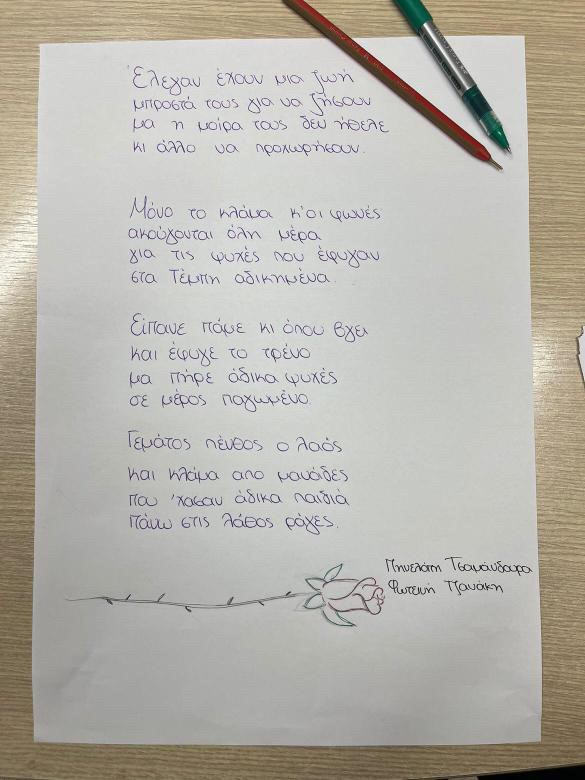 Έλεγαν έχουν μια ζωή
μπροστά τους για να ζήσουν
μα η μοίρα τους δεν ήθελε
κι άλλο να προχωρήσουν.
Μόνο το κλάμα κ'οι φωνές
ακούγονται όλη μέρα
για τις ψυχές που έφυγαν
στα Τέμπη αδικημένα.
Είπανε πάμε κι όπου βγει
και έφυγε το τρένο
μα πήρε άδικα ψυχές
σε μέρος παγωμένο.
Γεμάτος πένθος ο λαός
και κλάμα απο μανάδες
που 'χασαν άδικα παιδιά
πάνω στις λάθος ράγες.
Πηνελόπη Τσαμάνδουρα
Φωτεινή Τζανάκη